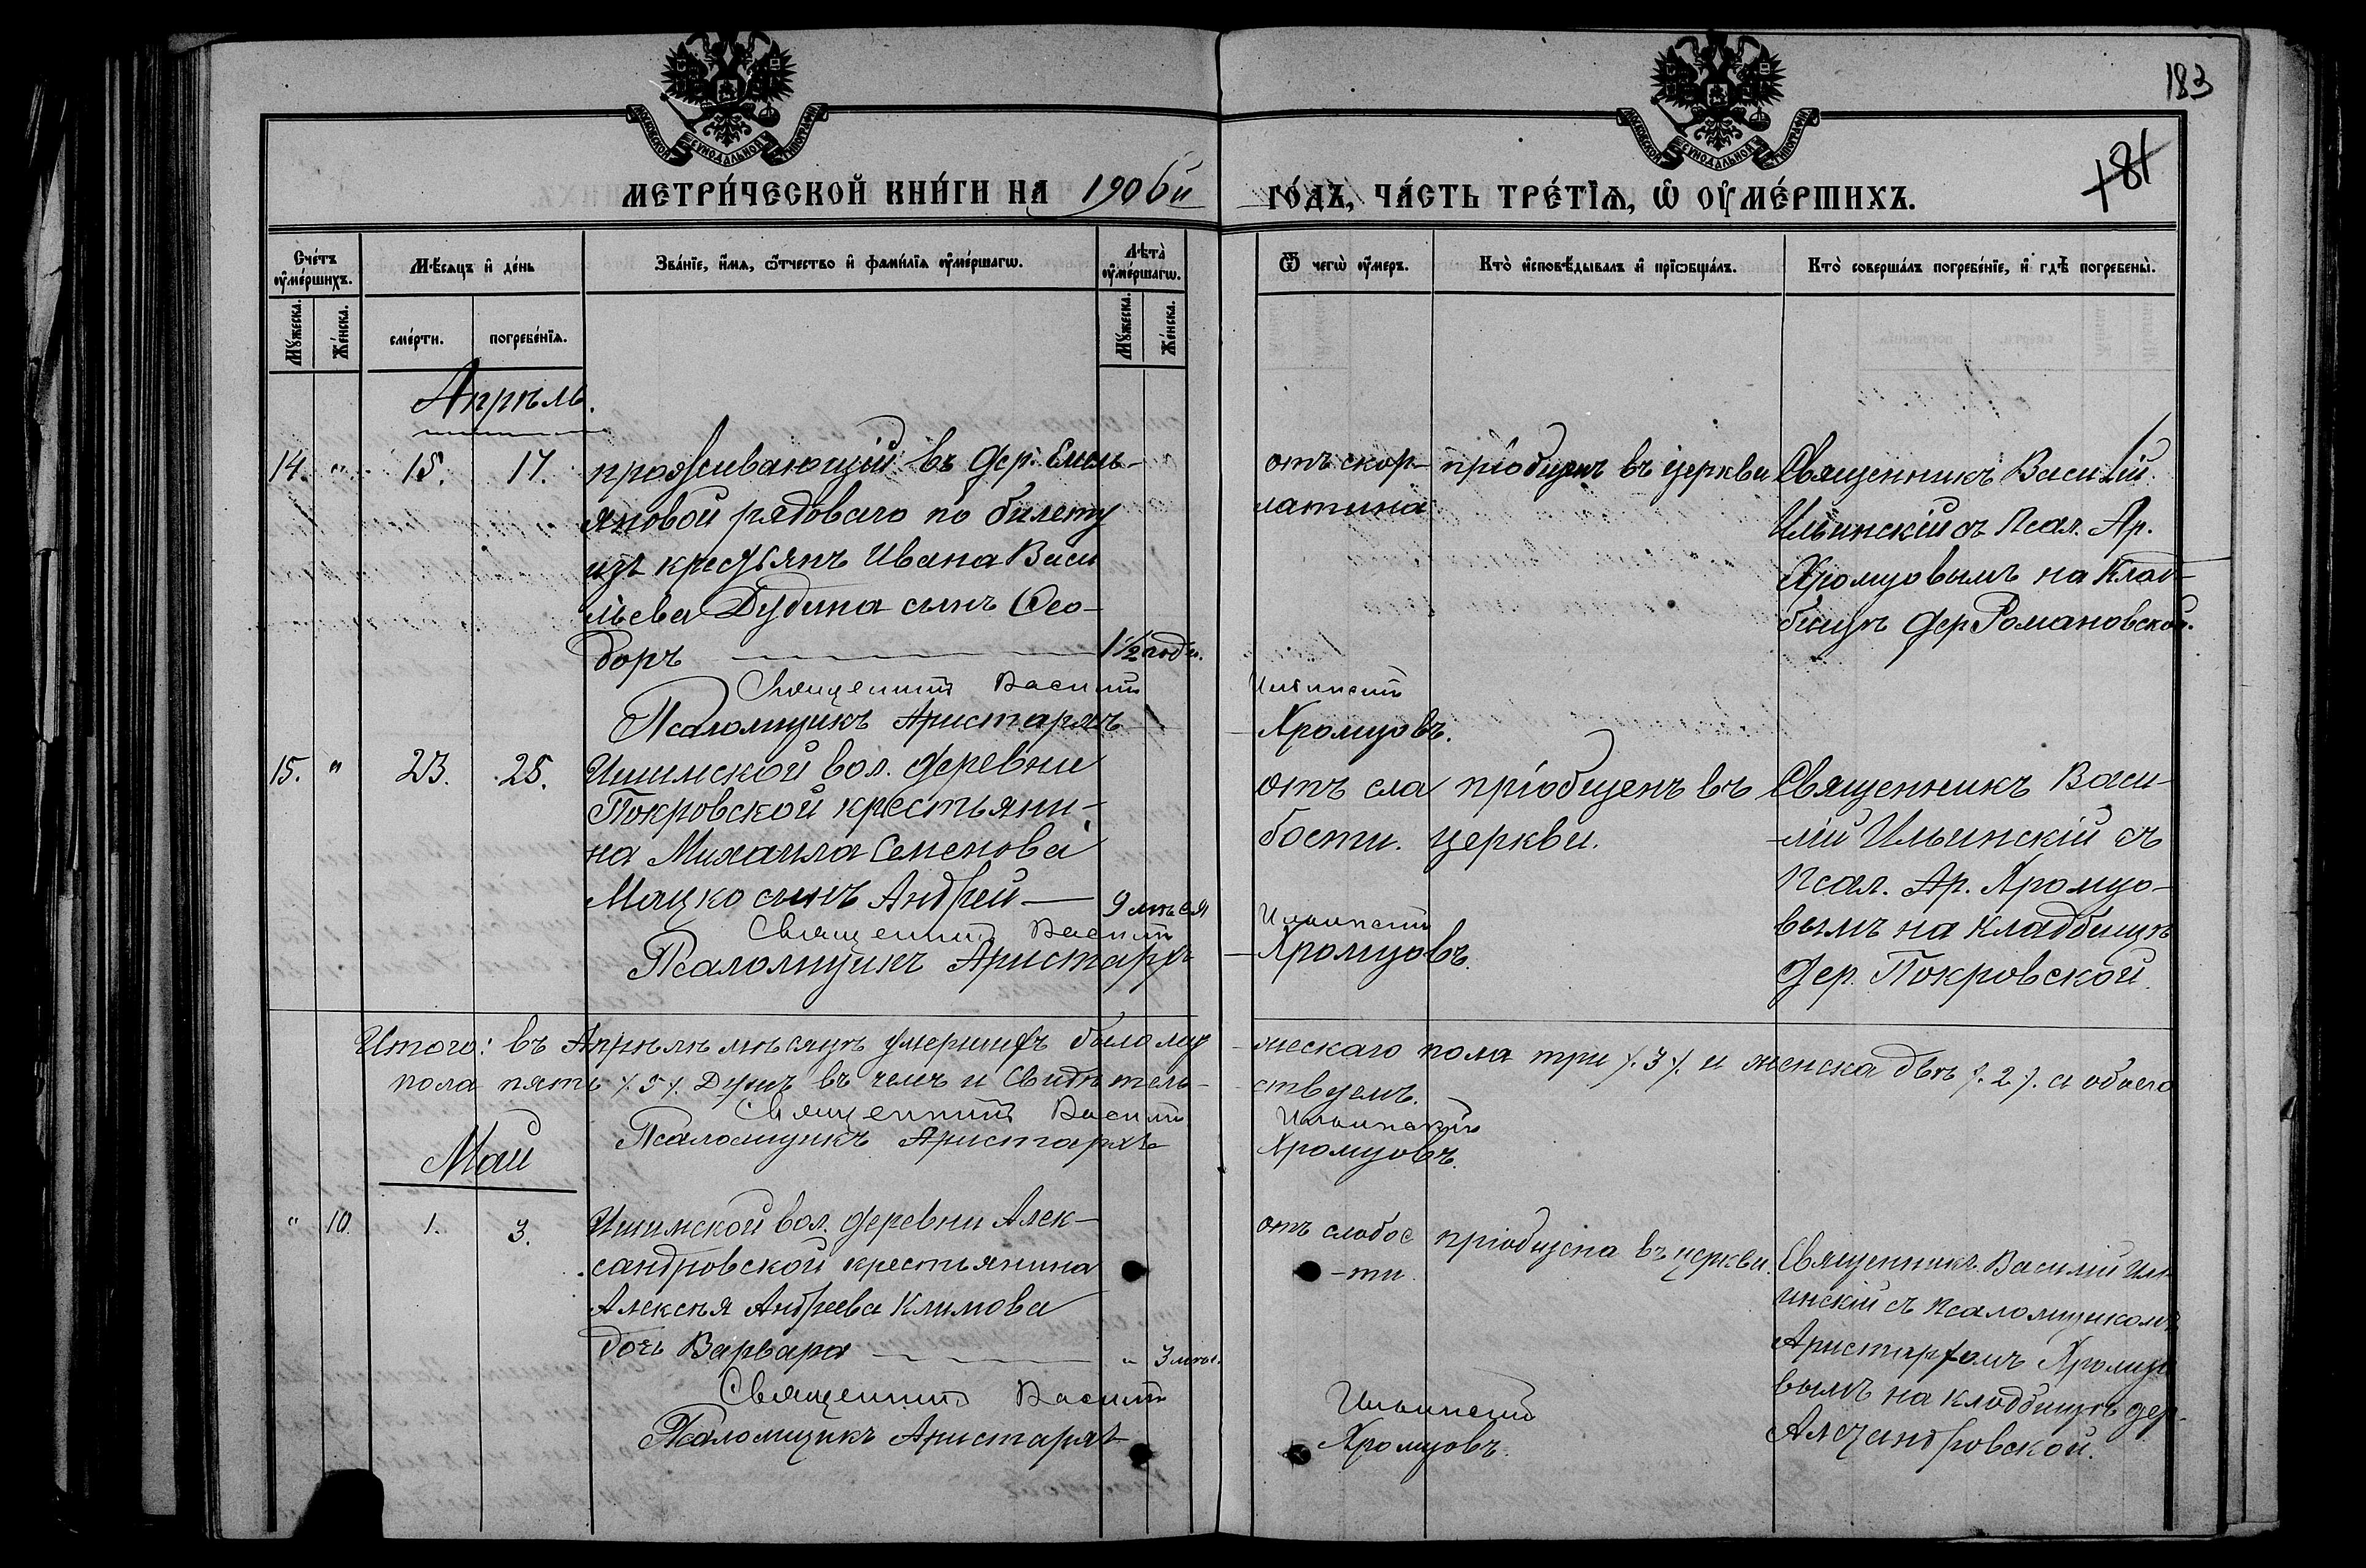 183
181
МОСКОВСКОЙ СУНОДАЛЬНОЙ ТИПОГРАФІИ
МОСКОВСКОЙ СУНОДАЛЬНОЙ ТИПОГРАФІИ
МЕТРИ́ЧЕСКОЙ КНИ́ГИ НА 1906й ГО́ДЪ, ЧА́СТЬ ТРЕ́ТІѦ, Ѡ ОУМЕ́РШИХЪ.
Сче́тъ оумéршихъ.
Мѣ́сяцъ и де́нь
Зва́нїе, и́мя, ѻ́тчество и фами́лїя оумéршагѡ.
Лѣта̀ оумéршагѡ.
Ѿ чегѡ̀ оу́меръ.
Кто̀ исповѣ́дывалъ и прїѡбща́лъ.
Кто̀ соверша́лъ погребе́нїе, и гдѣ̀ погребены̀.
Мꙋ́жеска.
Же́нска.
сме́рти.
погребе́нїя.
Мꙋ́жеска.
Же́нска.
Апрѣль.
14. " 15. 17. проживающій въ дер. Емель-
яновой рядоваго по билету
изъ крестьянъ Ивана Васи
льева Дудина сынъ Ѳео-
доръ 1½ года.
отъ скор-
латина
пріобщенъ въ церкви
Священникъ Василій
Ильинскій съ Псал. Ар.
Хромцовымъ на Клад-
бищѣ дер. Романовской.
Священникъ Василій Ильинскій
Псаломщикъ Аристархъ Хромцовъ.
15. " 23. 25. Ишимской вол. деревни
Покровской крестьяни-
на Михаила Семенова
Мацко сынъ Андрей — 9 мѣся
отъ сла
бости.
пріобщенъ въ
церкви.
Священникъ Васи-
-лій Ильинскій съ
Псал. Ар. Хромцо-
вымъ на кладбищѣ
дер. Покровской.
Священникъ Василій Ильинскій
Псаломщикъ Аристархъ Хромцовъ.
Итого: въ Апрѣлѣ мѣсяцѣ умершихъ было муж
-ческаго пола три /.3/. и женска двѣ /.2/. а обоего
пола пять /.5/. Душъ въ чемъ и Свидѣтель-
ствуемъ.
Священникъ Василій Ильинскій
Псаломщикъ Аристархъ Хромцовъ.
Май
" 10. 1. 3. Ишимской вол. деревни Алек-
сандровской крестьянина
Алексѣя Андреева Климова
дочь Варвара " 3 мѣс.
отъ слабос
-ти.
пріобщена въ церкви.
Священникъ Василій Иль-
инскій съ псаломщикомъ
Аристархомъ Хромцо
вымъ на кладбищѣ дер.
Александровской.
Священникъ Василій Ильинскій
Псаломщикъ Аристархъ Хромцовъ.